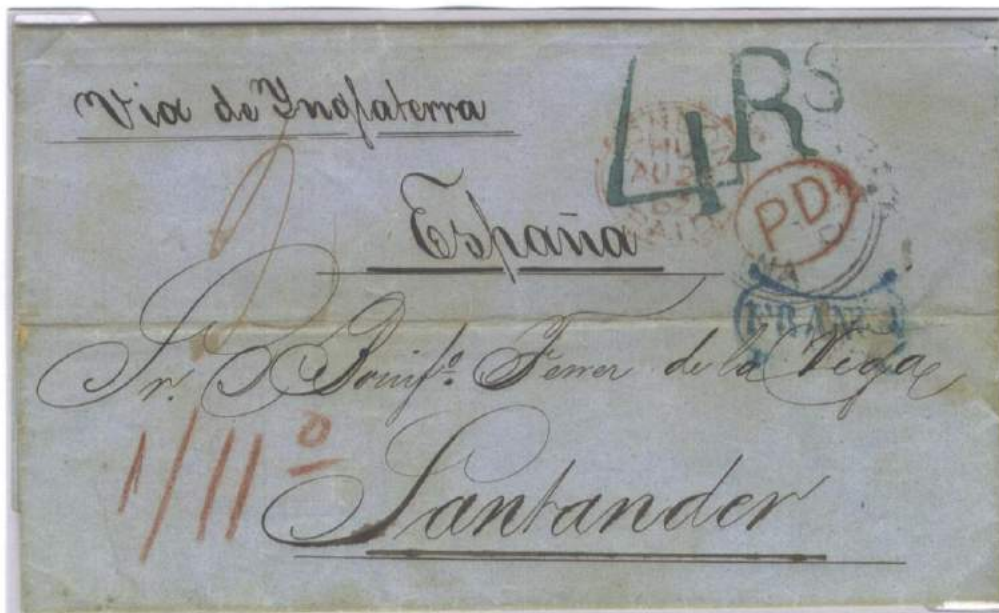 Via de Ynglaterra
4 Rs
AU
P.D
España
Sr. D Bonifo. Ferrer de la Vega
1/11 D
Santander